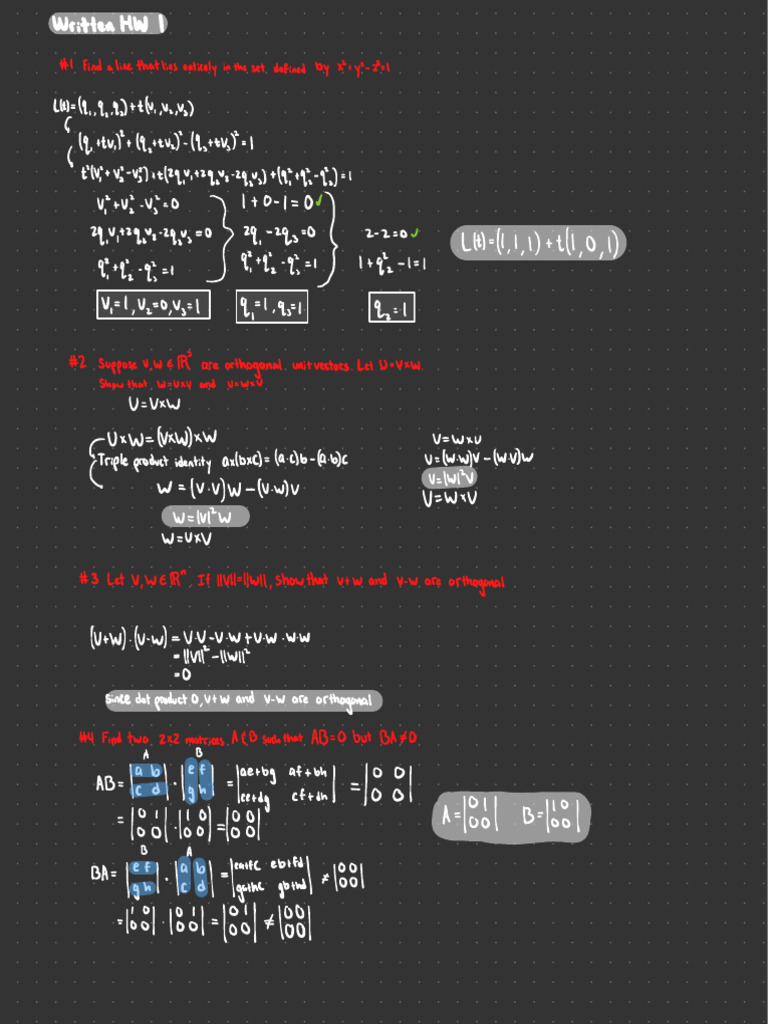 Written HW 1
#1 Find a line that lies entirely in the set defined by x²+y²-z²=1
L(t)=(q₁,q₂,q₃)+t(v₁,v₂,v₃)
(q₁+tv₁)²+(q₂+tv₂)²-(q₃+tv₃)²=1
t²(v₁²+v₂²-v₃²)+t(2q₁v₁+2q₂v₂-2q₃v₃)+(q₁²+q₂²-q₃²)=1
v₁²+v₂²-v₃²=0 1+0-1=0✓
2q₁v₁+2q₂v₂-2q₃v₃=0 2q₁-2q₃=0 2-2=0✓ L(t)=(1,1,1)+t(1,0,1)
q₁²+q₂²-q₃²=1 q₁²+q₂²-q₃²=1 1+q₂²-1=1
v₁=1,v₂=0,v₃=1 q₁=1,q₃=1 q₂=1
#2 Suppose v,w ∈ ℝ³ are orthogonal unit vectors. Let U=V×W.
Show that W=U×V and V=W×U
U=V×W
U×W=(V×W)×W V=W×U
Triple product identity a×(b×c)=(a·c)b-(a·b)c V=(W·W)V-(W·V)W
W=(V·V)W-(V·W)V V=|W|²V
W=|V|²W V=W×V
W=U×V
#3 Let V,W∈ℝⁿ. If ||V||=||W||, show that v+w and v-w are orthogonal
(V+W)·(V-W)=V·V-V·W+V·W-W·W
=||V||²-||W||²
=0
since dot product 0, v+w and v-w are orthogonal
#4 Find two 2x2 matrices, A & B such that AB=0 but BA≠0
A B
AB=|a b| · |e f| = |ae+bg af+bh| = |0 0|
|c d| |g h| |ce+dg cf+dh| |0 0|
A=|0 1| B=|1 0|
|0 0| |0 0|
=|0 1| · |1 0| = |0 0|
|0 0| |0 0| |0 0|
B A
BA=|e f| · |a b| = |ea+fc eb+fd| ≠ |0 0|
|g h| |c d| |ga+hc gb+hd| |0 0|
=|1 0| · |0 1| = |0 1| ≠ |0 0|
|0 0| |0 0| |0 0| |0 0|